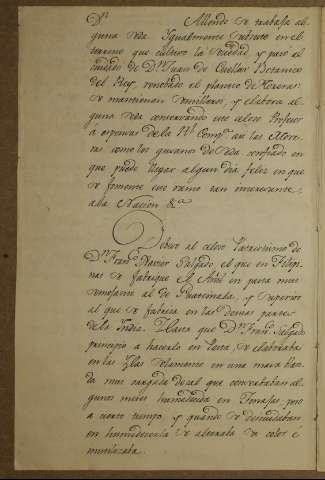 Dn Allende se trabaja al-
guna seda. Igualmente subsiste en el
terreno que cultivó la Sociedad, y pasó al
cuidado de Dn Juan de Cuellar Botanico
del Rey, renobado el plantío de Moreras
se mantienen semilleros, y elabora al-
guna seda conserbando ese celoso Profesor
a expensas de la Rl Compª así las More-
ras como los gusanos de seda, confiado en
que puede llegar algun dia feliz en que
se fomente ese ramo tan interesante
ala Nacion &ª
Debese al celoso Patriotismo de
Dn Franco Xavier Salgado, el que en Filipi-
nas se fabrique el Añil en pasta muy
semejante al de Guatemala, y superior
al que se fabrica en las demas partes
dela India. Hasta que Dn Franco Salgado
principió a hacerlo en pasta, se elaboraba
en las Yslas solamente en una masa blan-
da muy cargada de cal que conserbaban al-
gunos meses humedecida en Tinajas, pero
a cierto tiempo, y quando se descuidaban
en humedecerla se alteraba de color é
inutilizaba.